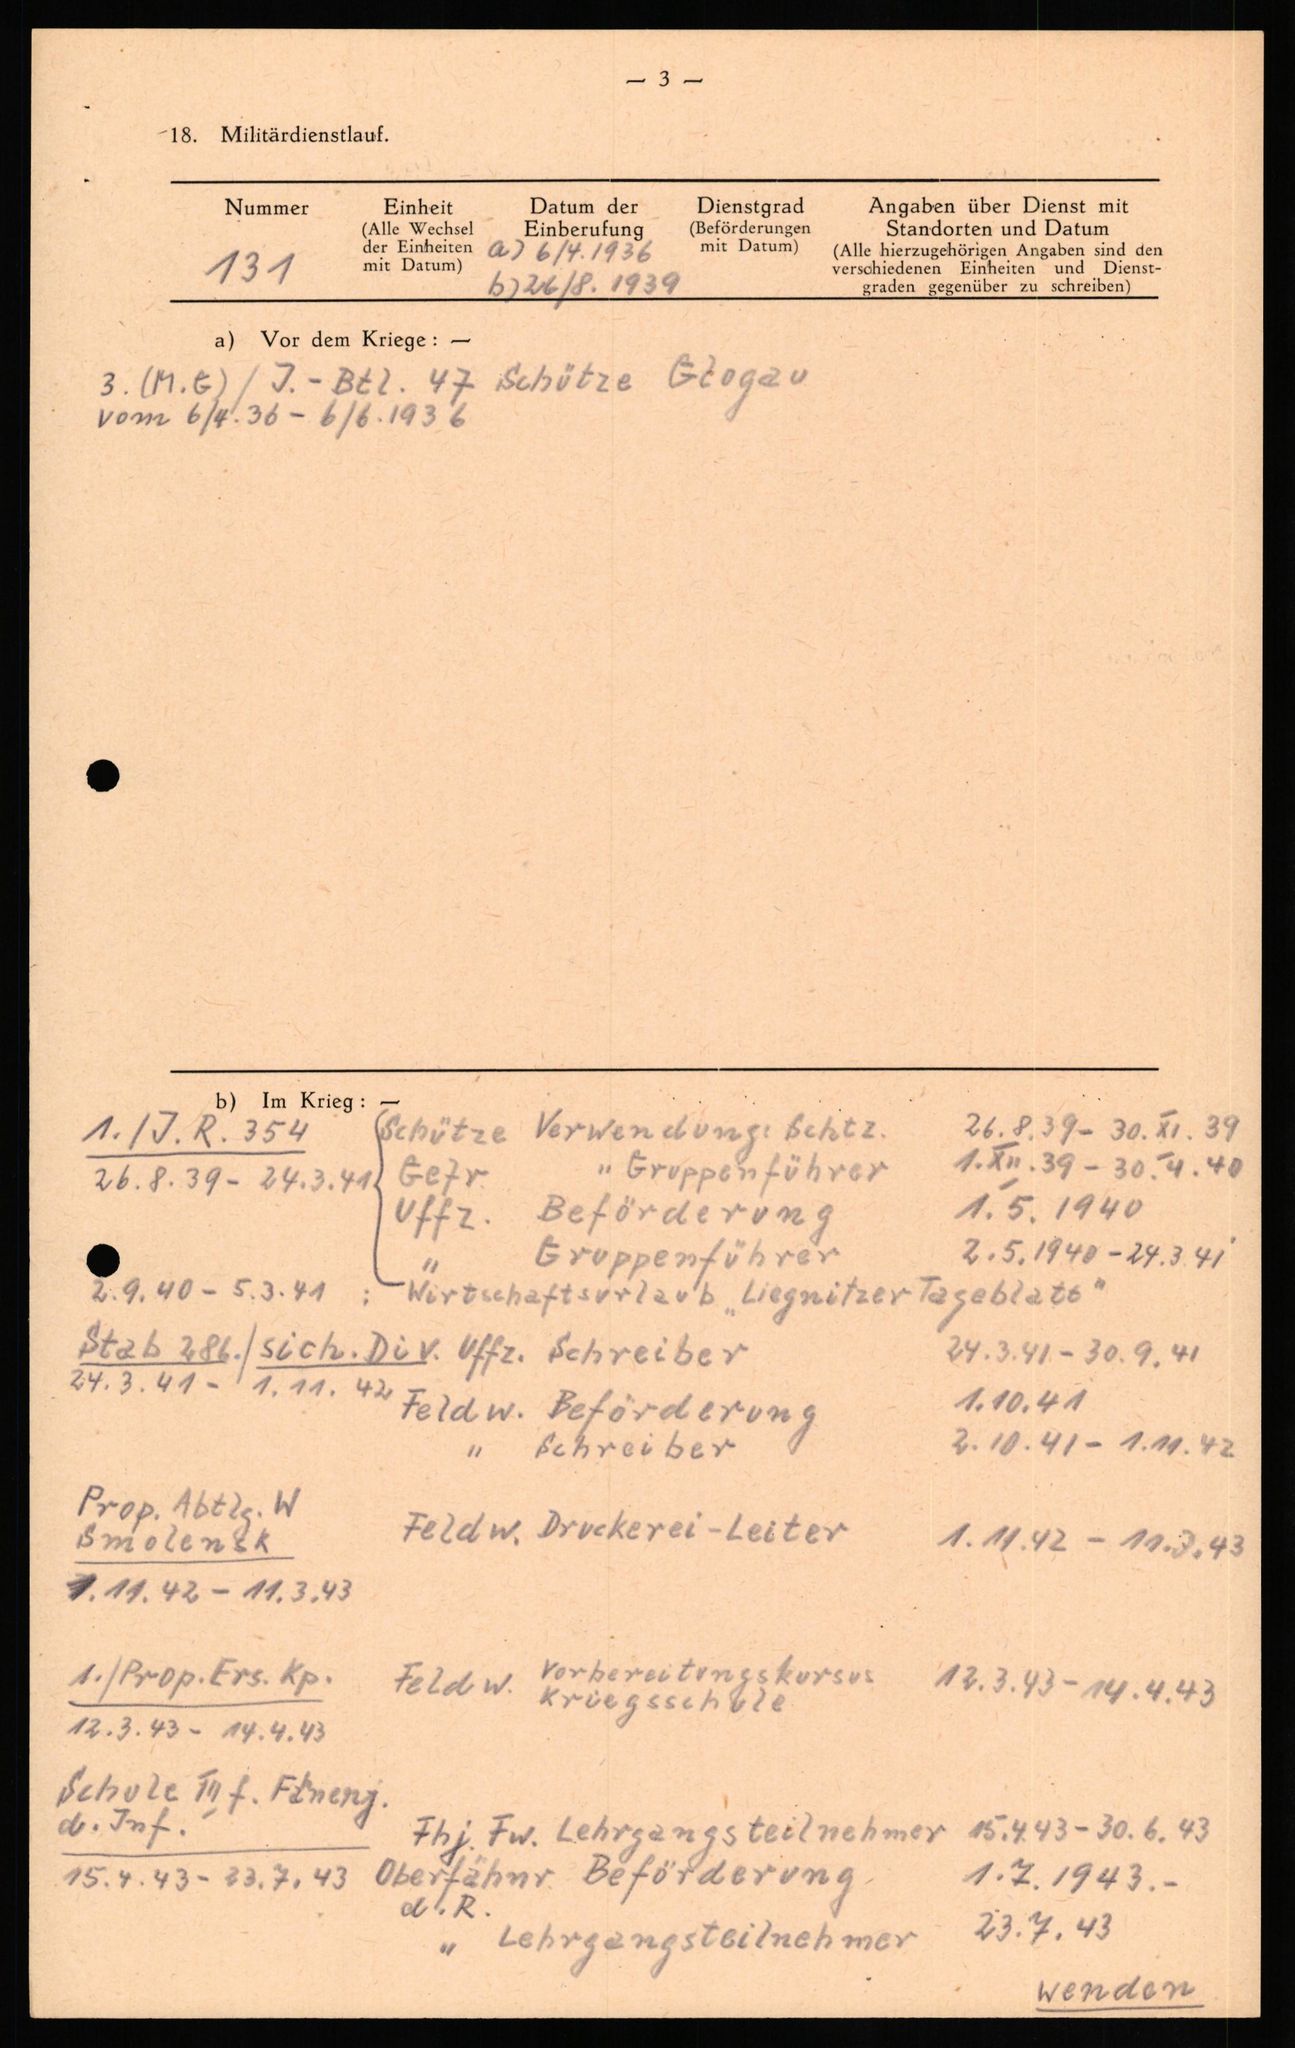 — 3 —
18. Militärdienstlauf.
Nummer
131
Einheit
(Alle Wechsel
der Einheiten
mit Datum)
Datum der
Einberufung
a) 6/4.1936
b) 26/8. 1939
Dienstgrad
(Beförderungen
mit Datum)
Angaben über Dienst mit
Standorten und Datum
(Alle hierzugehörigen Angaben sind den
verschiedenen Einheiten und Dienst-
graden gegenüber zu schreiben)
a) Vor dem Kriege: —
3. (M.G) / J. - Btl. 47 Schütze Glogau
vom 6/4.36 - 6/6.1936
b) Im Krieg: —
1. / J. R. 354 Schütze Verwendung: Schtz. 26.8.39 - 30.XI.39
26.8.39 - 24.3.41 Gefr. " Gruppenführer 1.XII.39 - 30.4.40
Uffz. Beförderung 1.5.1940
" Gruppenführer 2.5.1940 - 24.3.41
2.9.40 - 5.3.41 : Wirtschaftsurlaub „Liegnitzer Tageblatt"
Stab 286./sich. Div. Uffz. Schreiber 24.3.41 - 30.9.41
24.3.41 - 1.11.42
Feldw. Beförderung 1.10.41
" Schreiber 2.10.41 - 1.11.42
Prop. Abtlg. W
Smolensk Feldw. Druckerei-Leiter 1.11.42 - 11.3.43
1.11.42 - 11.3.43
1./Prop. Ers. Kp. Feldw. Vorbereitungskursus 12.3.43 - 14.4.43
Kriegsschule
12.3.43 - 14.4.43
Schule III f. Fhnenj.
d. Inf.
Fhj. Fw. Lehrgangsteilnehmer 15.4.43 - 30.6.43
15.4.43 - 23.7.43 Oberfähnr. Beförderung 1.7.1943.-
d. R.
" Lehrgangsteilnehmer 23.7.43
wenden